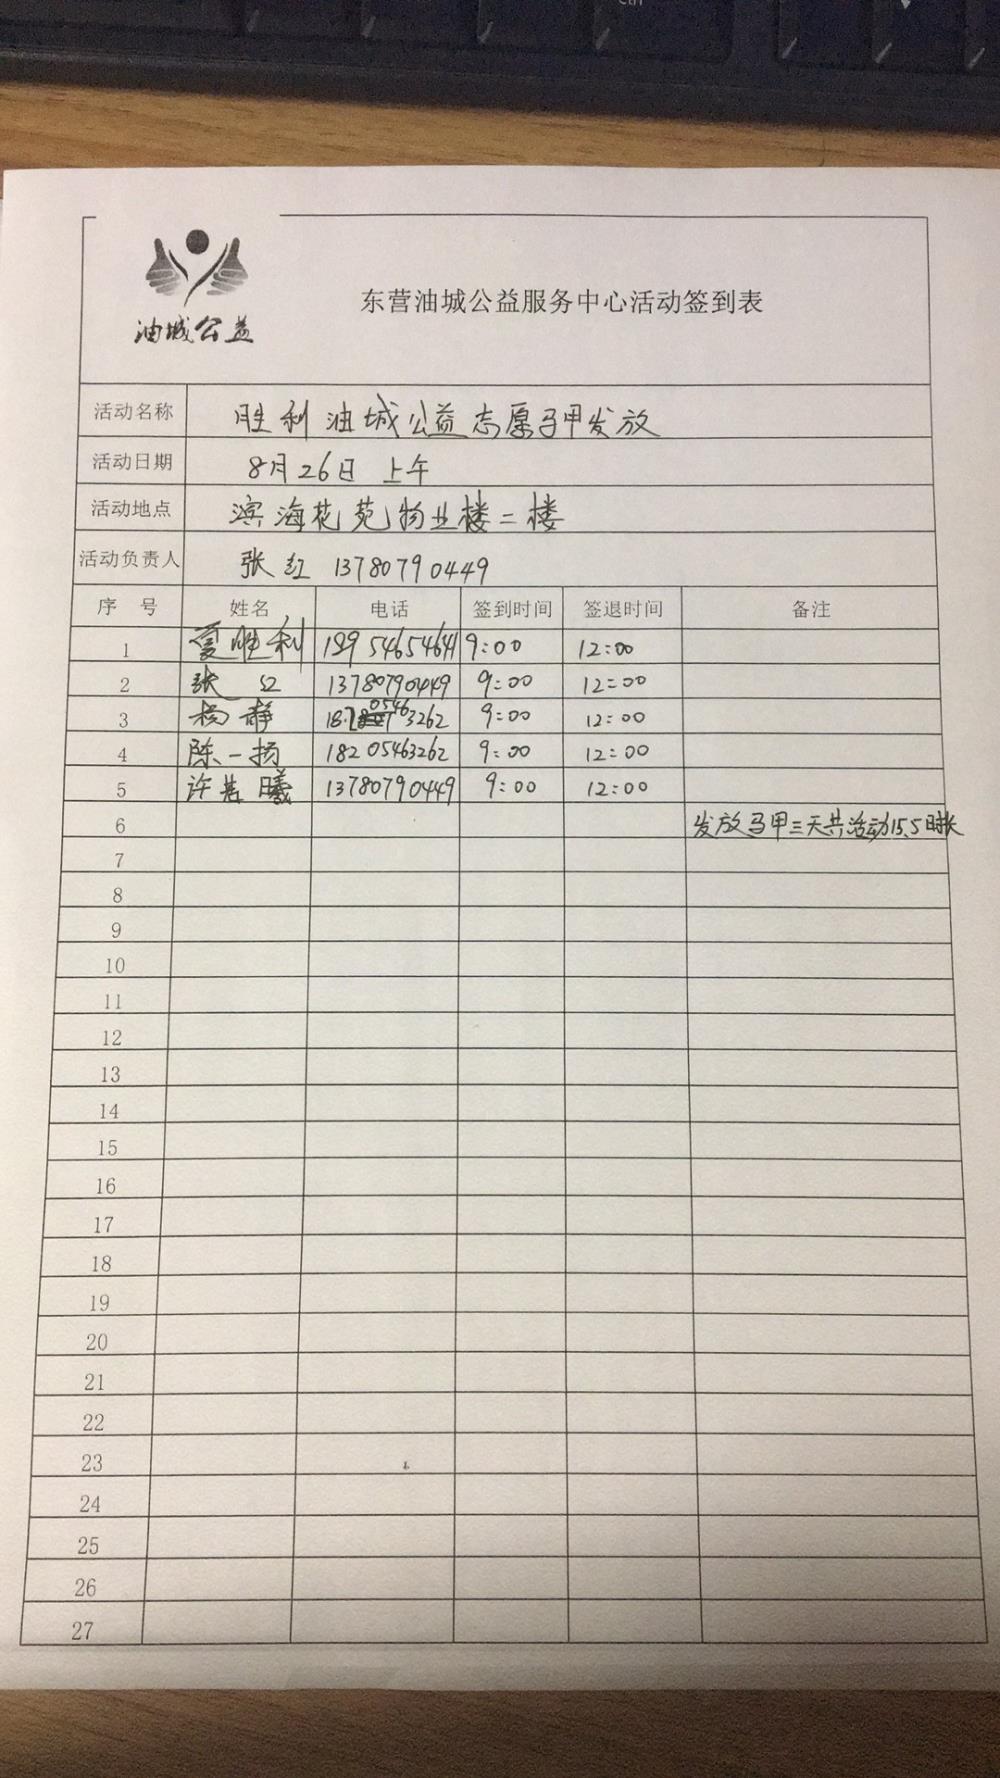 油城公益
东营油城公益服务中心活动签到表
活动名称 胜利油城公益志愿马甲发放
活动日期 8月26日 上午
活动地点 滨海花苑物业楼二楼
活动负责人 张红 13780790449
序 号 姓名 电话 签到时间 签退时间 备注
1 夏胜利 18954654641 9:00 12:00
2 张红 13780790449 9:00 12:00
3 杨静 9:00 12:00
4 陈一扬 18205463262 9:00 12:00
5 许若曦 13780790449 9:00 12:00
6 发放马甲三天共活动15.5时长
7
8
9
10
11
12
13
14
15
16
17
18
19
20
21
22
23
24
25
26
27